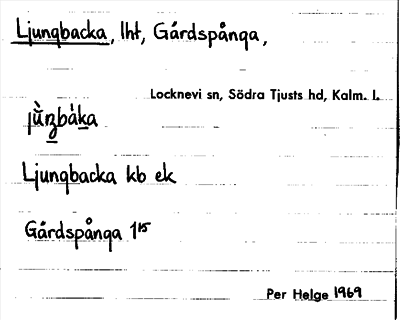 Ljungbacka, lht, Gårdspånga,
Locknevi sn, Södra Tjusts hd, Kalm. l.
Ljungbacka kb ek
Gårdspånga 1¹⁵
Per Helge 1969